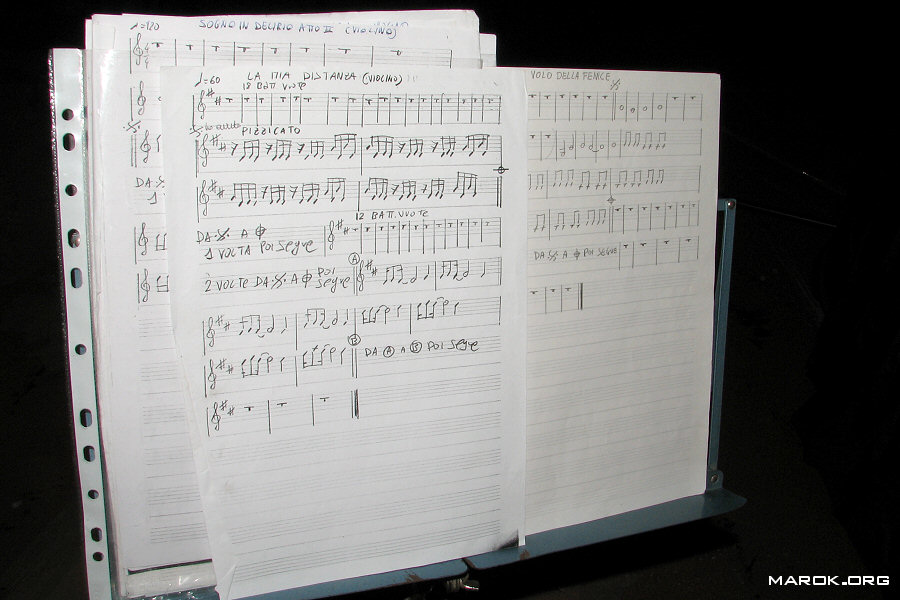 ♩=120 SOGNO IN DELIRIO ATTO II (VIOLINO)
DA 𝄋
1
♩=60 LA MIA DISTANZA (VIOLINO)
18 BATT. VUOTE
PIZZICATO
12 BATT. VUOTE
DA 𝄋 A 𝄌
1 VOLTA POI SEGUE
2 VOLTE DA 𝄋 A 𝄌 POI SEGUE
A
B
DA Ⓐ A Ⓑ POI SEGUE
VOLO DELLA FENICE
DA 𝄋 A 𝄌 POI SEGUE
MAROK.ORG